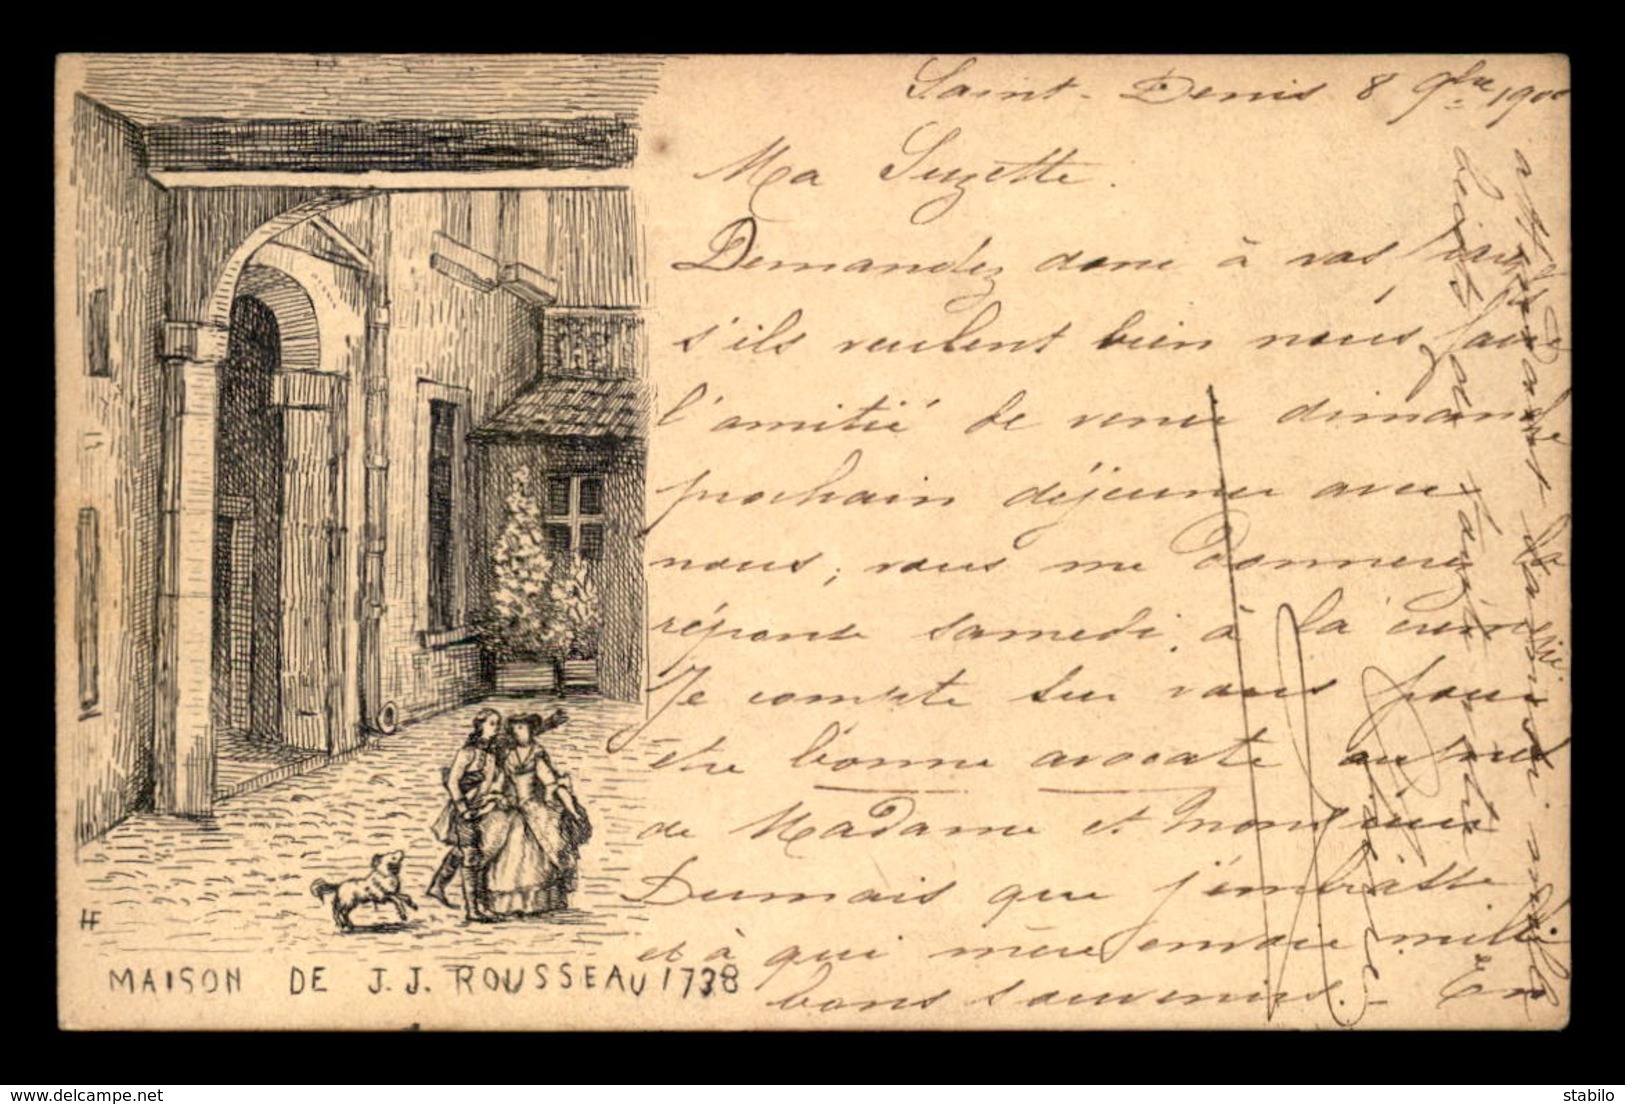 Saint-Denis 8 9bre 1900
Ma Suzette.
Demandez donc à vos
s'ils veulent bien nous faire
l'amitié de venir dimanche
prochain déjeuner avec
nous, vous me donnerez
réponse samedi, à la
Je compte sur vous pour
être bonne avocate auprès
de Madame et Monsieur
Dumais que j'embrasse
et à qui mère envoie mille
bons souvenirs. - En
attendant la
votre
MAISON DE J.J. ROUSSEAU 1738
HF
delcampe.net
stabilo